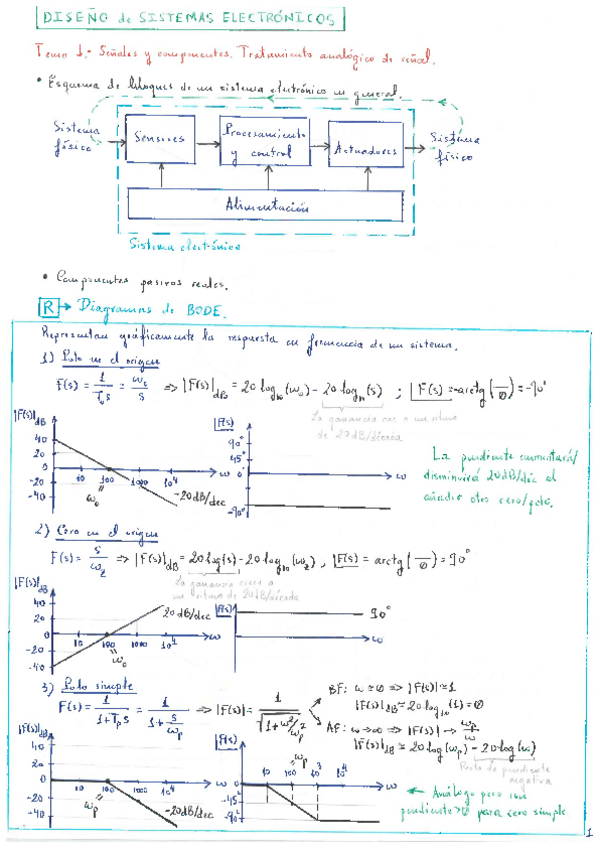 DISEÑO de SISTEMAS ELECTRÓNICOS
Tema 1.- Señales y componentes. Tratamiento analógico de señal.
• Esquema de bloques de un sistema electrónico en general.
Sistema físico
Sensores
Procesamiento y control
Actuadores
Sistema físico
Alimentación
Sistema electrónico
• Componentes pasivos reales.
R → Diagramas de BODE.
Representan gráficamente la respuesta en frecuencia de un sistema.
1) Polo en el origen
F(s) = 1/T₀s = ω₀/s ⇒ |F(s)|dB = 20 log₁₀(ω₀) - 20 log₁₀(s) ; |F(s) = -arctg(—/0) = -90°
La ganancia cae a un ritmo
de 20 dB/década
|F(s)|dB
40
20
0
-20
-40
10 100 1000 10⁴ ω
ω₀
-20dB/dec
|F(s)
90°
45°
0°
-90°
ω
La pendiente aumentará/
disminuirá 20dB/dec al
añadir otro cero/polo.
2) Cero en el origen
F(s) = s/ωz ⇒ |F(s)|dB = 20 log(s) - 20 log₁₀(ωz) , |F(s) = arctg(—/0) = 90°
La ganancia crece a
un ritmo de 20dB/década
|F(s)|dB
40
20
0
-20
-40
10 100 1000 10⁴ ω
ω₀
20 dB/dec
|F(s)
90°
ω
3) Polo simple
F(s) = 1/(1+Tps) = 1/(1+s/ωp) ⇒ |F(s)| = 1/√(1+ω²/ωp²)
BF: ω ≃ 0 ⇒ |F(s)| ≃ 1
|F(s)|dB ≃ 20 log₁₀(1) = 0
AF: ω→∞ ⇒ |F(s)| → ωp/ω
|F(s)|dB ≃ 20 log(ωp) - 20 log(ω)
Recta de pendiente
negativa
|F(s)|dB
40
20
0
-20
-40
10 100 1000 10⁴ ω
ωp
-20dB/dec
|F(s)
ωp
10 100 10³ 10⁴ ω
0
-45°
-90°
Análogo pero con
pendiente>0 para cero simple
1